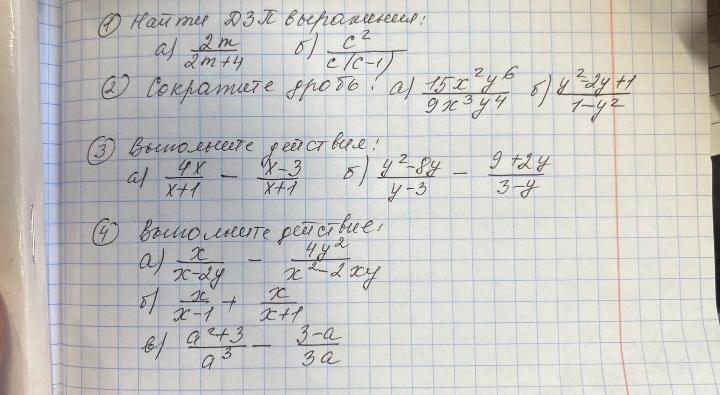 ① Найти ДЗП выражения:
а) 2m/(2m+4) б) c²/(c(c-1))
② Сократите дробь: а) 15x²y⁶/(9x³y⁴) б) (y²-2y+1)/(1-y²)
③ Выполните действия:
а) 4x/(x+1) - (x-3)/(x+1) б) (y²-8y)/(y-3) - (9+2y)/(3-y)
④ Выполните действие:
а) x/(x-2y) - 4y²/(x²-2xy)
б) x/(x-1) + x/(x+1)
в) (a²+3)/a³ - (3-a)/(3a)